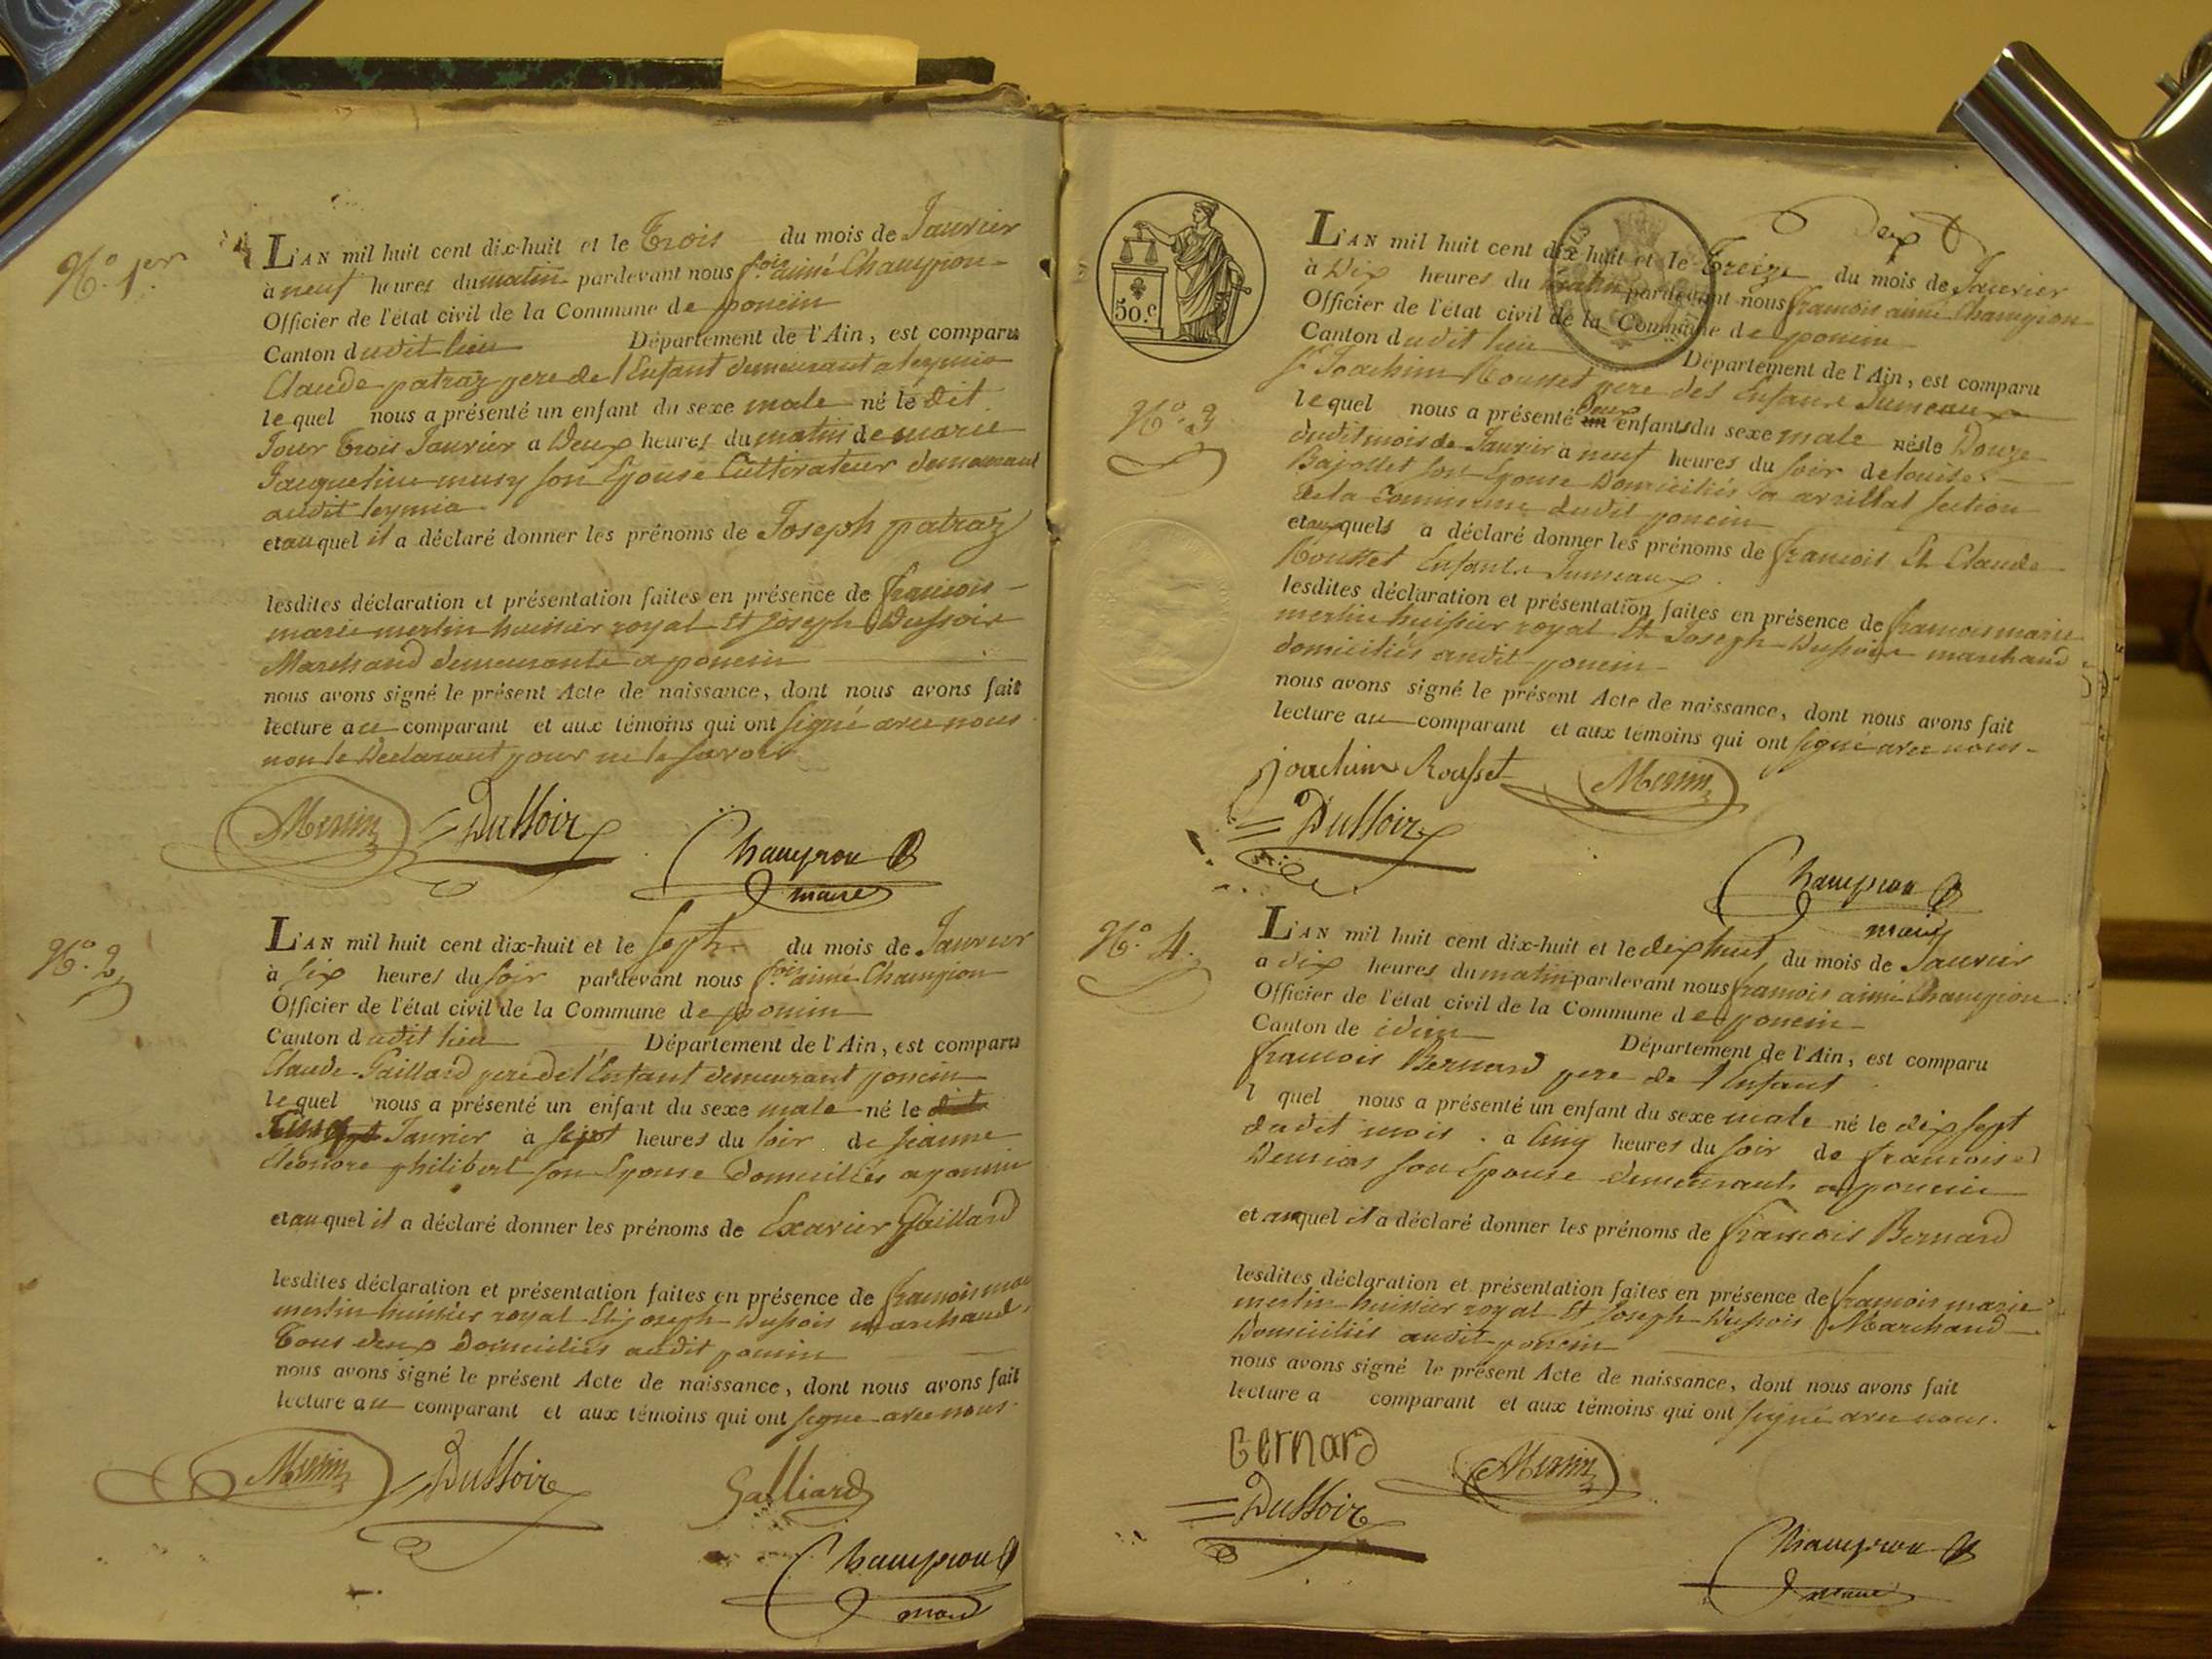 N.o 1.er
L'AN mil huit cent dix-huit et le Trois du mois de Janvier
à neuf heures du matin pardevant nous f.ois aimé Champion
Officier de l'état civil de la Commune de poncin
Canton dudit lieu Département de l'Ain, est comparu
Claude patraz pere de l'Enfant demeurant a leymia
lequel nous a présenté un enfant du sexe male né le dit
Jour Trois Janvier a Deux heures du matin de marie
Jacqueline musy son Epouse Cultivateur demeurant
audit leymia
et auquel il a déclaré donner les prénoms de Joseph patraz
lesdites déclaration et présentation faites en présence de francois
marie merlin huissier royal Et joseph Dussoir
Marchand demeurants a poncin
nous avons signé le présent Acte de naissance, dont nous avons fait
lecture au comparant et aux témoins qui ont signé avec nous
non le Declarant pour ne le savoir
Merlin Dussoir
Champion
maire
N.o 2
L'AN mil huit cent dix-huit et le sept du mois de Janvier
à six heures du soir pardevant nous f.ois aimé Champion
Officier de l'état civil de la Commune de poncin
Canton dudit lieu Département de l'Ain, est comparu
Claude Gaillard pere de l'Enfant demeurant poncin
lequel nous a présenté un enfant du sexe male né le
Janvier à sept heures du soir de jeanne
Eléonore philibert son Epouse Domiciliés a poncin
et auquel il a déclaré donner les prénoms de Exavier Gaillard
lesdites déclaration et présentation faites en présence de francois marie
merlin huissier royal Et joseph Dussoir marchand
Tous deux Domiciliés audit poncin
nous avons signé le présent Acte de naissance, dont nous avons fait
lecture au comparant et aux témoins qui ont signé avec nous
Merlin Dussoir Galliard
Champion
maire
Deux
50.c
N.o 3
L'AN mil huit cent dix-huit et le Treize du mois de Janvier
à Dix heures du matin pardevant nous francois aimé Champion
Officier de l'état civil de la Commune de poncin
Canton dudit lieu Département de l'Ain, est comparu
S.r Joachim Rousset pere des Enfans Jumeaux
lequel nous a présenté un deux enfants du sexe male nés le Douze
dudit mois de Janvier à neuf heures du soir de louise
Bajollet son Epouse Domiciliés a arrillat section
de la Commune dudit poncin
et auxquels a déclaré donner les prénoms de francois Et Claude
Rousset Enfants Jumeaux
lesdites déclaration et présentation faites en présence de francois marie
merlin huissier royal Et Joseph Dussoir marchand
domiciliés audit poncin
nous avons signé le présent Acte de naissance, dont nous avons fait
lecture au comparant et aux témoins qui ont signé avec nous
joachim Rousset Merlin
Dussoir
Champion
maire
N.o 4
L'AN mil huit cent dix-huit et le dix huit du mois de Janvier
à dix heures du matin pardevant nous francois aimé Champion
Officier de l'état civil de la Commune de poncin
Canton de idem Département de l'Ain, est comparu
francois Bernard pere de l'Enfant
l quel nous a présenté un enfant du sexe male né le dix sept
dudit mois à Cinq heures du soir de francoise
son Epouse demeurants a poncin
et auquel il a déclaré donner les prénoms de francois Bernard
lesdites déclaration et présentation faites en présence de francois marie
merlin huissier royal Et joseph Dussoir Marchand
Domiciliés audit poncin
nous avons signé le présent Acte de naissance, dont nous avons fait
lecture a comparant et aux témoins qui ont signé avec nous.
Bernard Merlin
Dussoir
Champion
maire